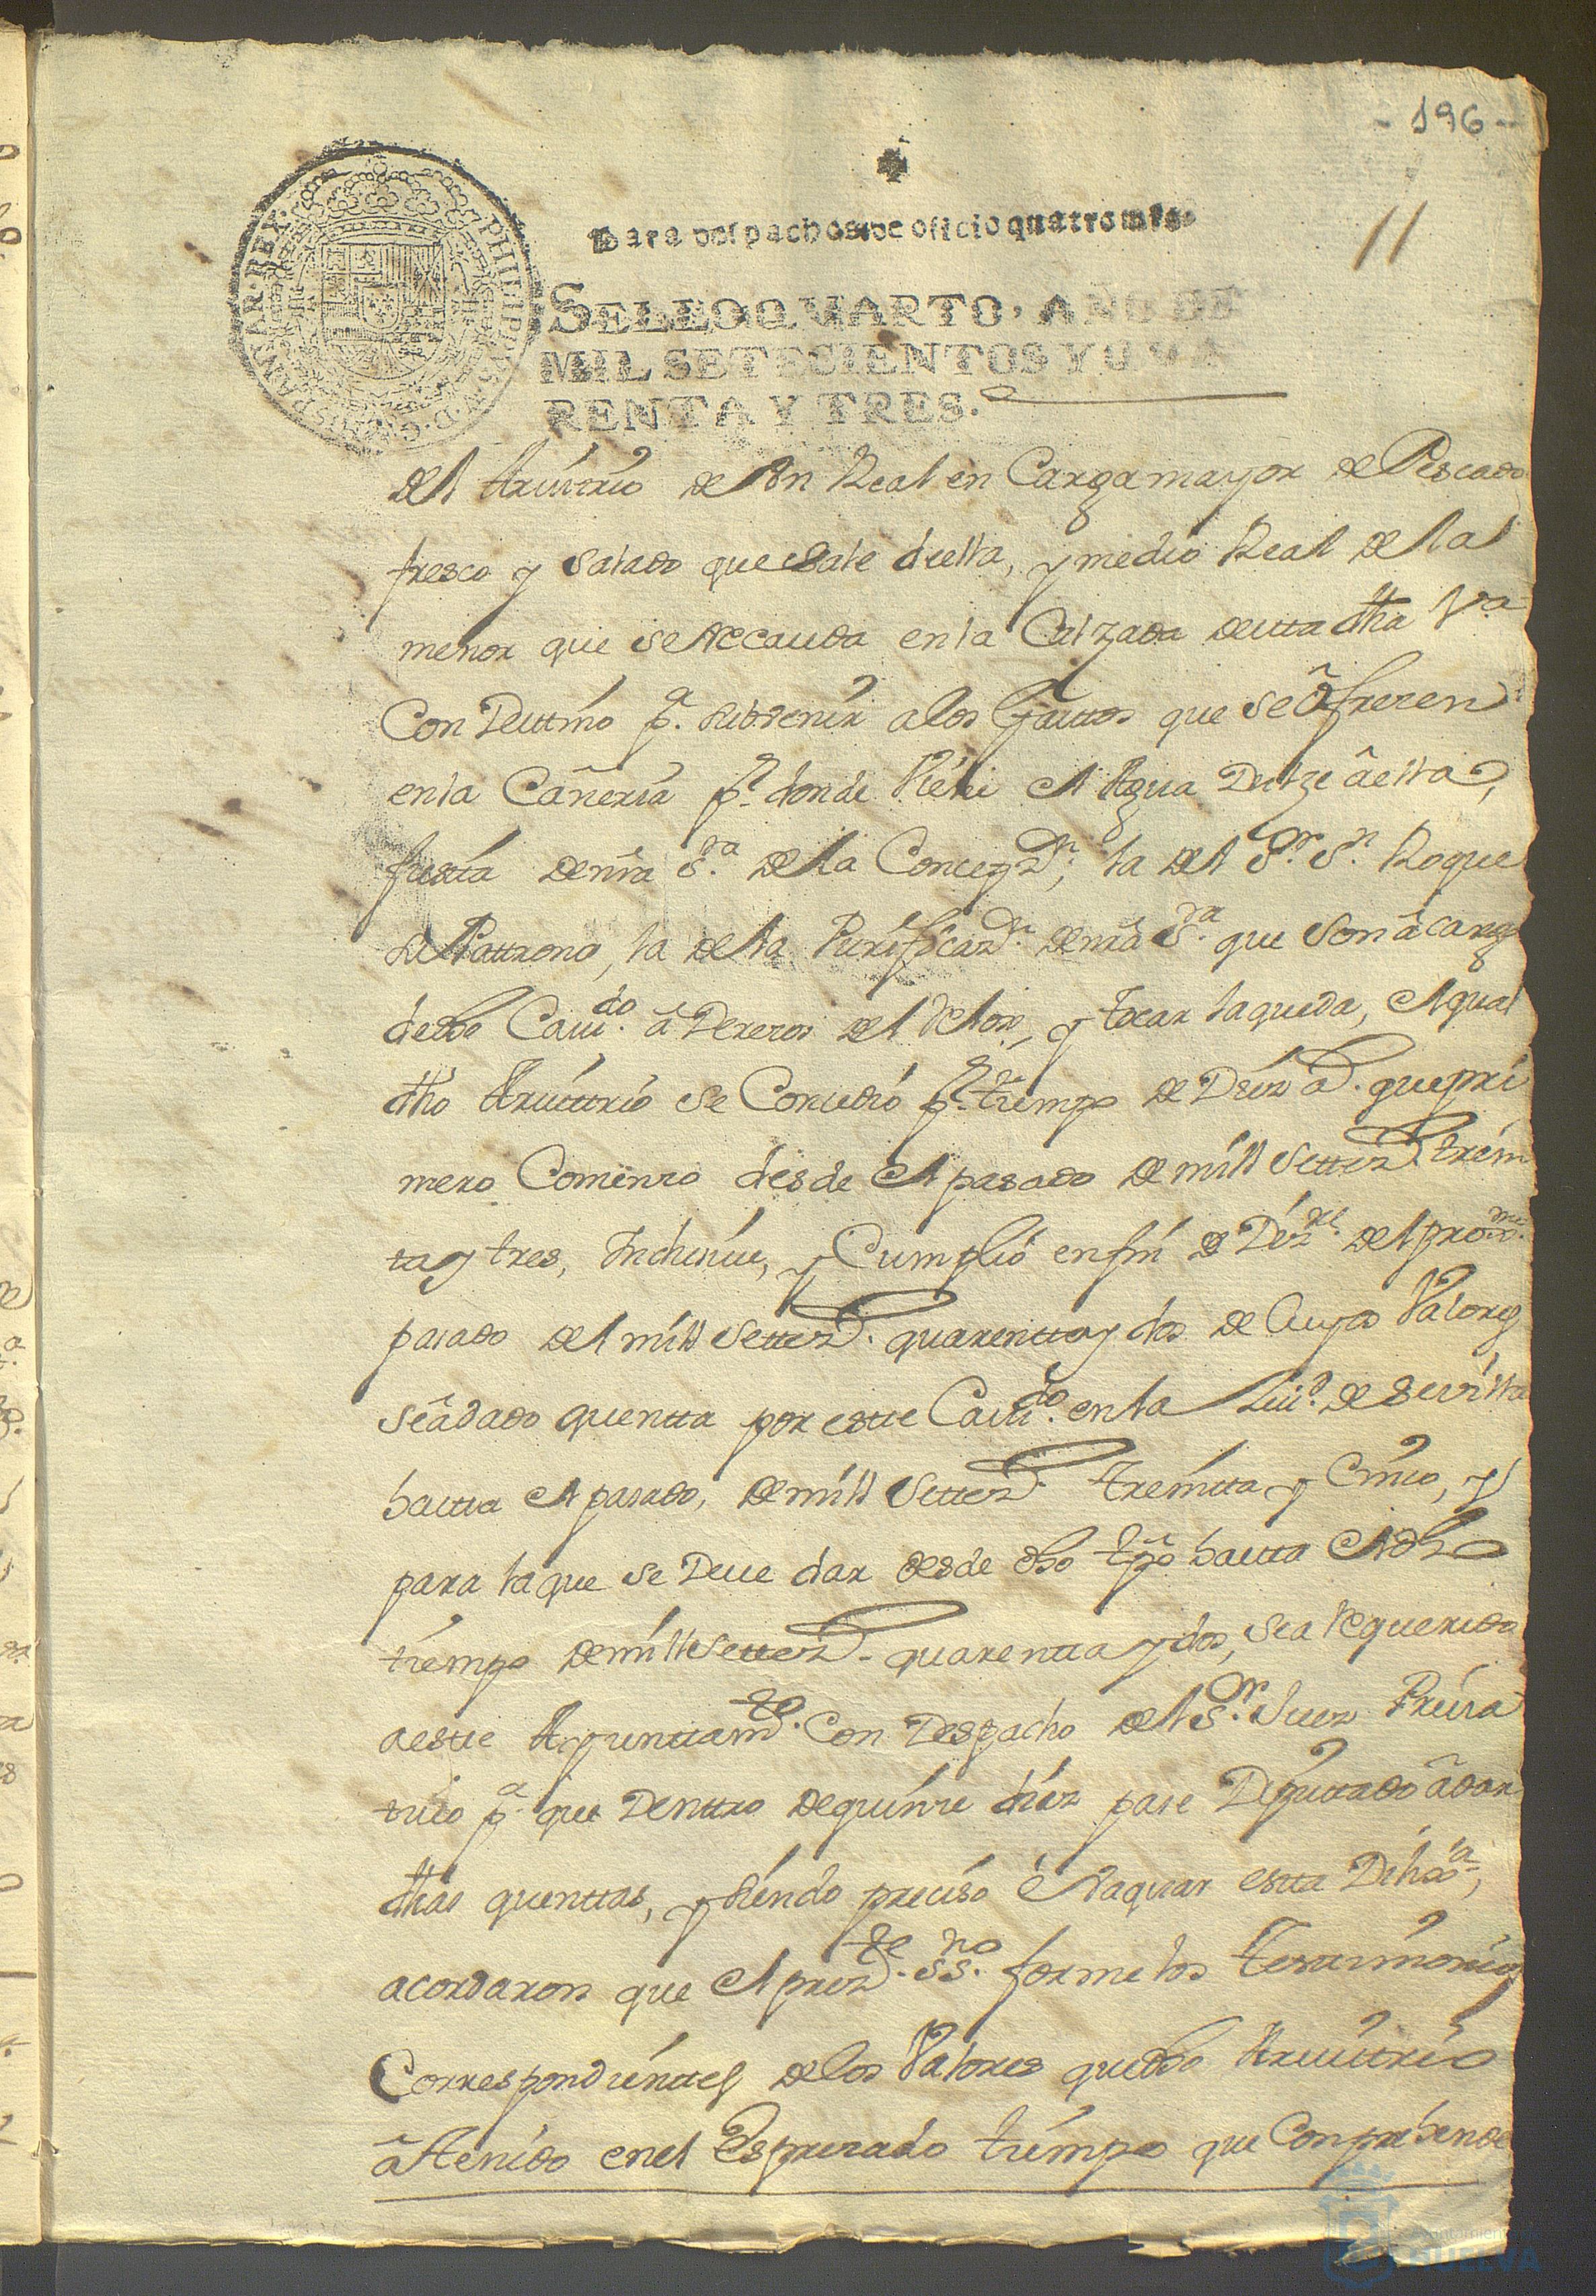 - 196 -
11
Para despachos de oficio quatro mrs.
SELLO QUARTO, AÑO DE
MIL SETECIENTOS Y QUA
RENTA Y TRES.
PHILIPPUS V D G HISPANIAR REX
del Arvitrio de Vn Real en Carga mayor de Pescado
fresco y Salado que Sale della, y medio Real de la
menor que se Reccauda en la Calzada de esta dha Va
Con Desttino pa. subvenir a los Gasttos que se ofrezen
en la Cañeria pr. donde Viene el Agua Dulze a ella,
fiesta de nra Sra de la Concepzn, la del Sr. Sn. Roque
su Pattrono, la de la Purificazn. de nra Sra. que son a cargo
de dho Cavdo. aderezos del Relox, y tocar la queda, el qual
dho Arvittrio se Conzedió pr. tiempo de Diez as. que pri
mero Comenzo desde el pasado de mill Settezs. trein
ta y tres, Inclusive, y Cumplió en fin de Dizre. del proxmo.
pasado del mill Settezs. quarentta y dos de Cuyos Valores
se a dado quentta por estte Cavdo. en la Ciud. de Sevilla
hastta el pasado, de mill Settezs. treintta y Cinco, y
para la que se Deve dar desde dho tpo hastta el dho
tiempo de mill Settezs. quarentta y dos, se a Requerido
a estte Ayunttamto. Con Despacho del Sr. Juez Priva
tivo pa. que Denttro de quinze dias pase Diputtado a dar
dhas quenttas, y siendo preciso ebaquar estta Dilixa,
acordaron que el prezte. SSno. forme los Testtimonios
Correspondienttes de los Valores que dho Arvittrio
a Tenido en el Espresado tiempo que Conprehende
Ayuntamiento
HUELVA